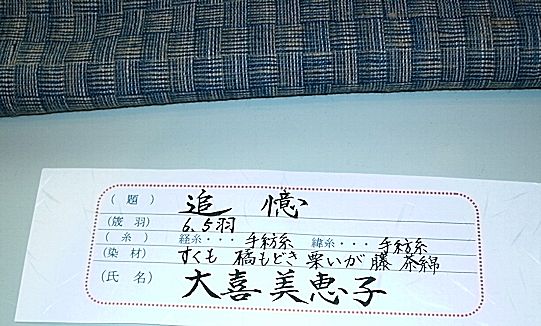 （題） 追憶
（筬羽） 6.5羽
（糸） 経糸・・・手紡糸 緯糸・・・手紡糸
（染材） すくも 橘もどき 栗いが 藤 茶綿
（氏名） 大喜美恵子